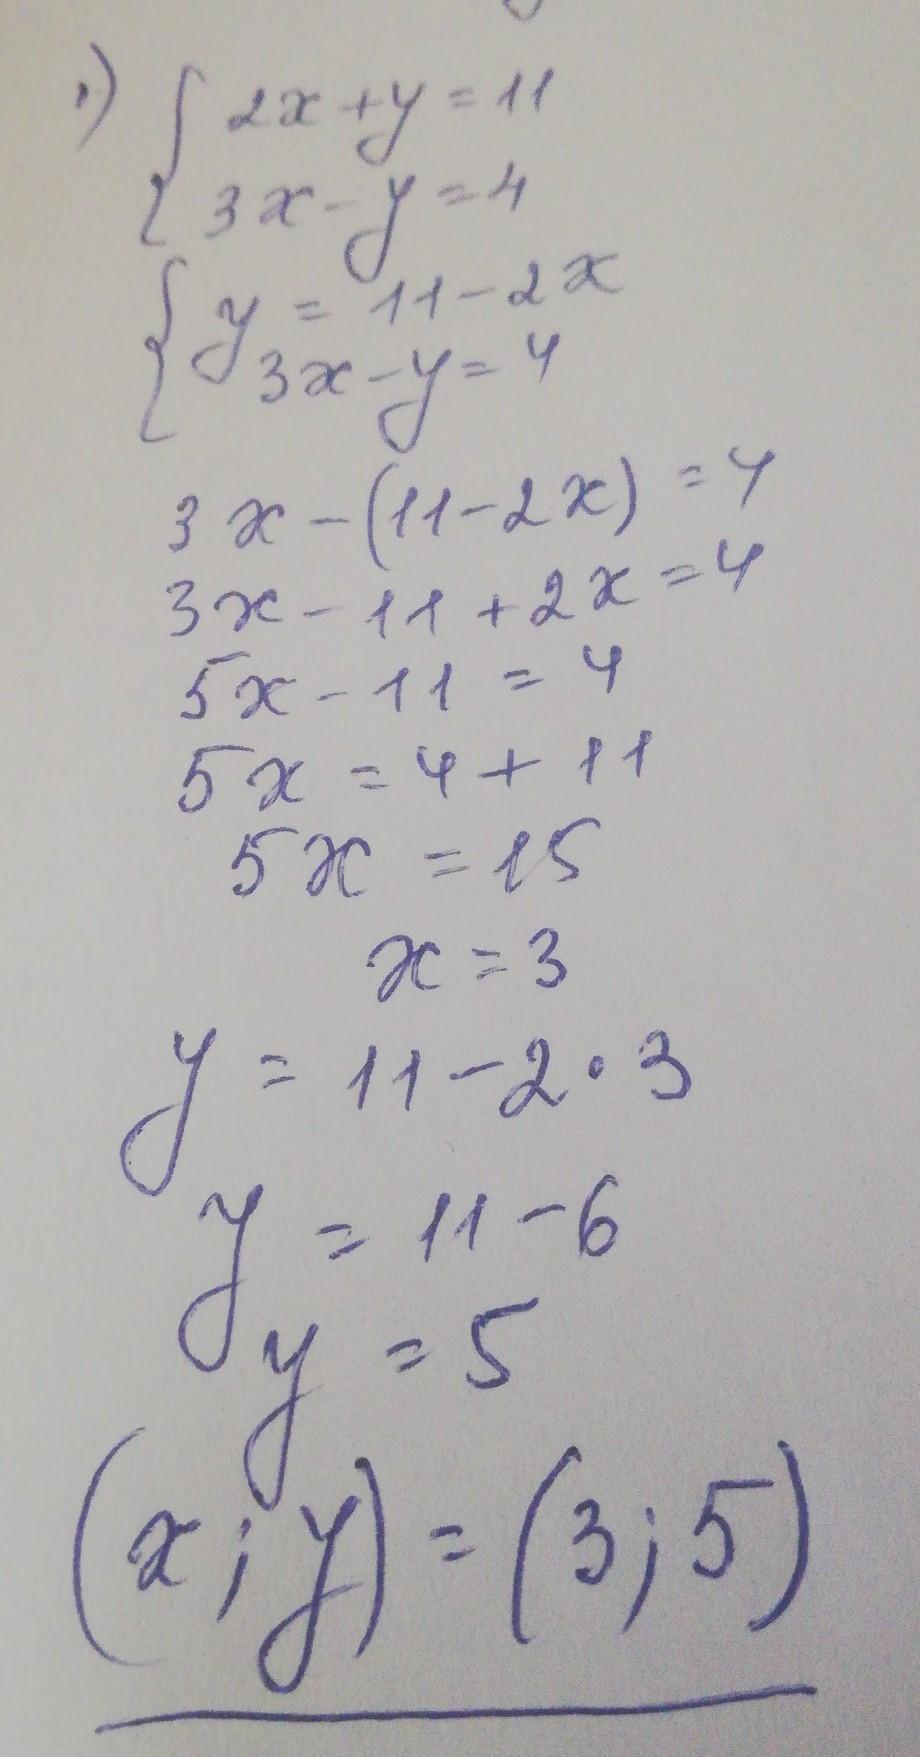 1) { 2x + y = 11
3x - y = 4
{ y = 11 - 2x
3x - y = 4
3x - (11 - 2x) = 4
3x - 11 + 2x = 4
5x - 11 = 4
5x = 4 + 11
5x = 15
x = 3
y = 11 - 2 · 3
y = 11 - 6
y = 5
(x; y) = (3; 5)